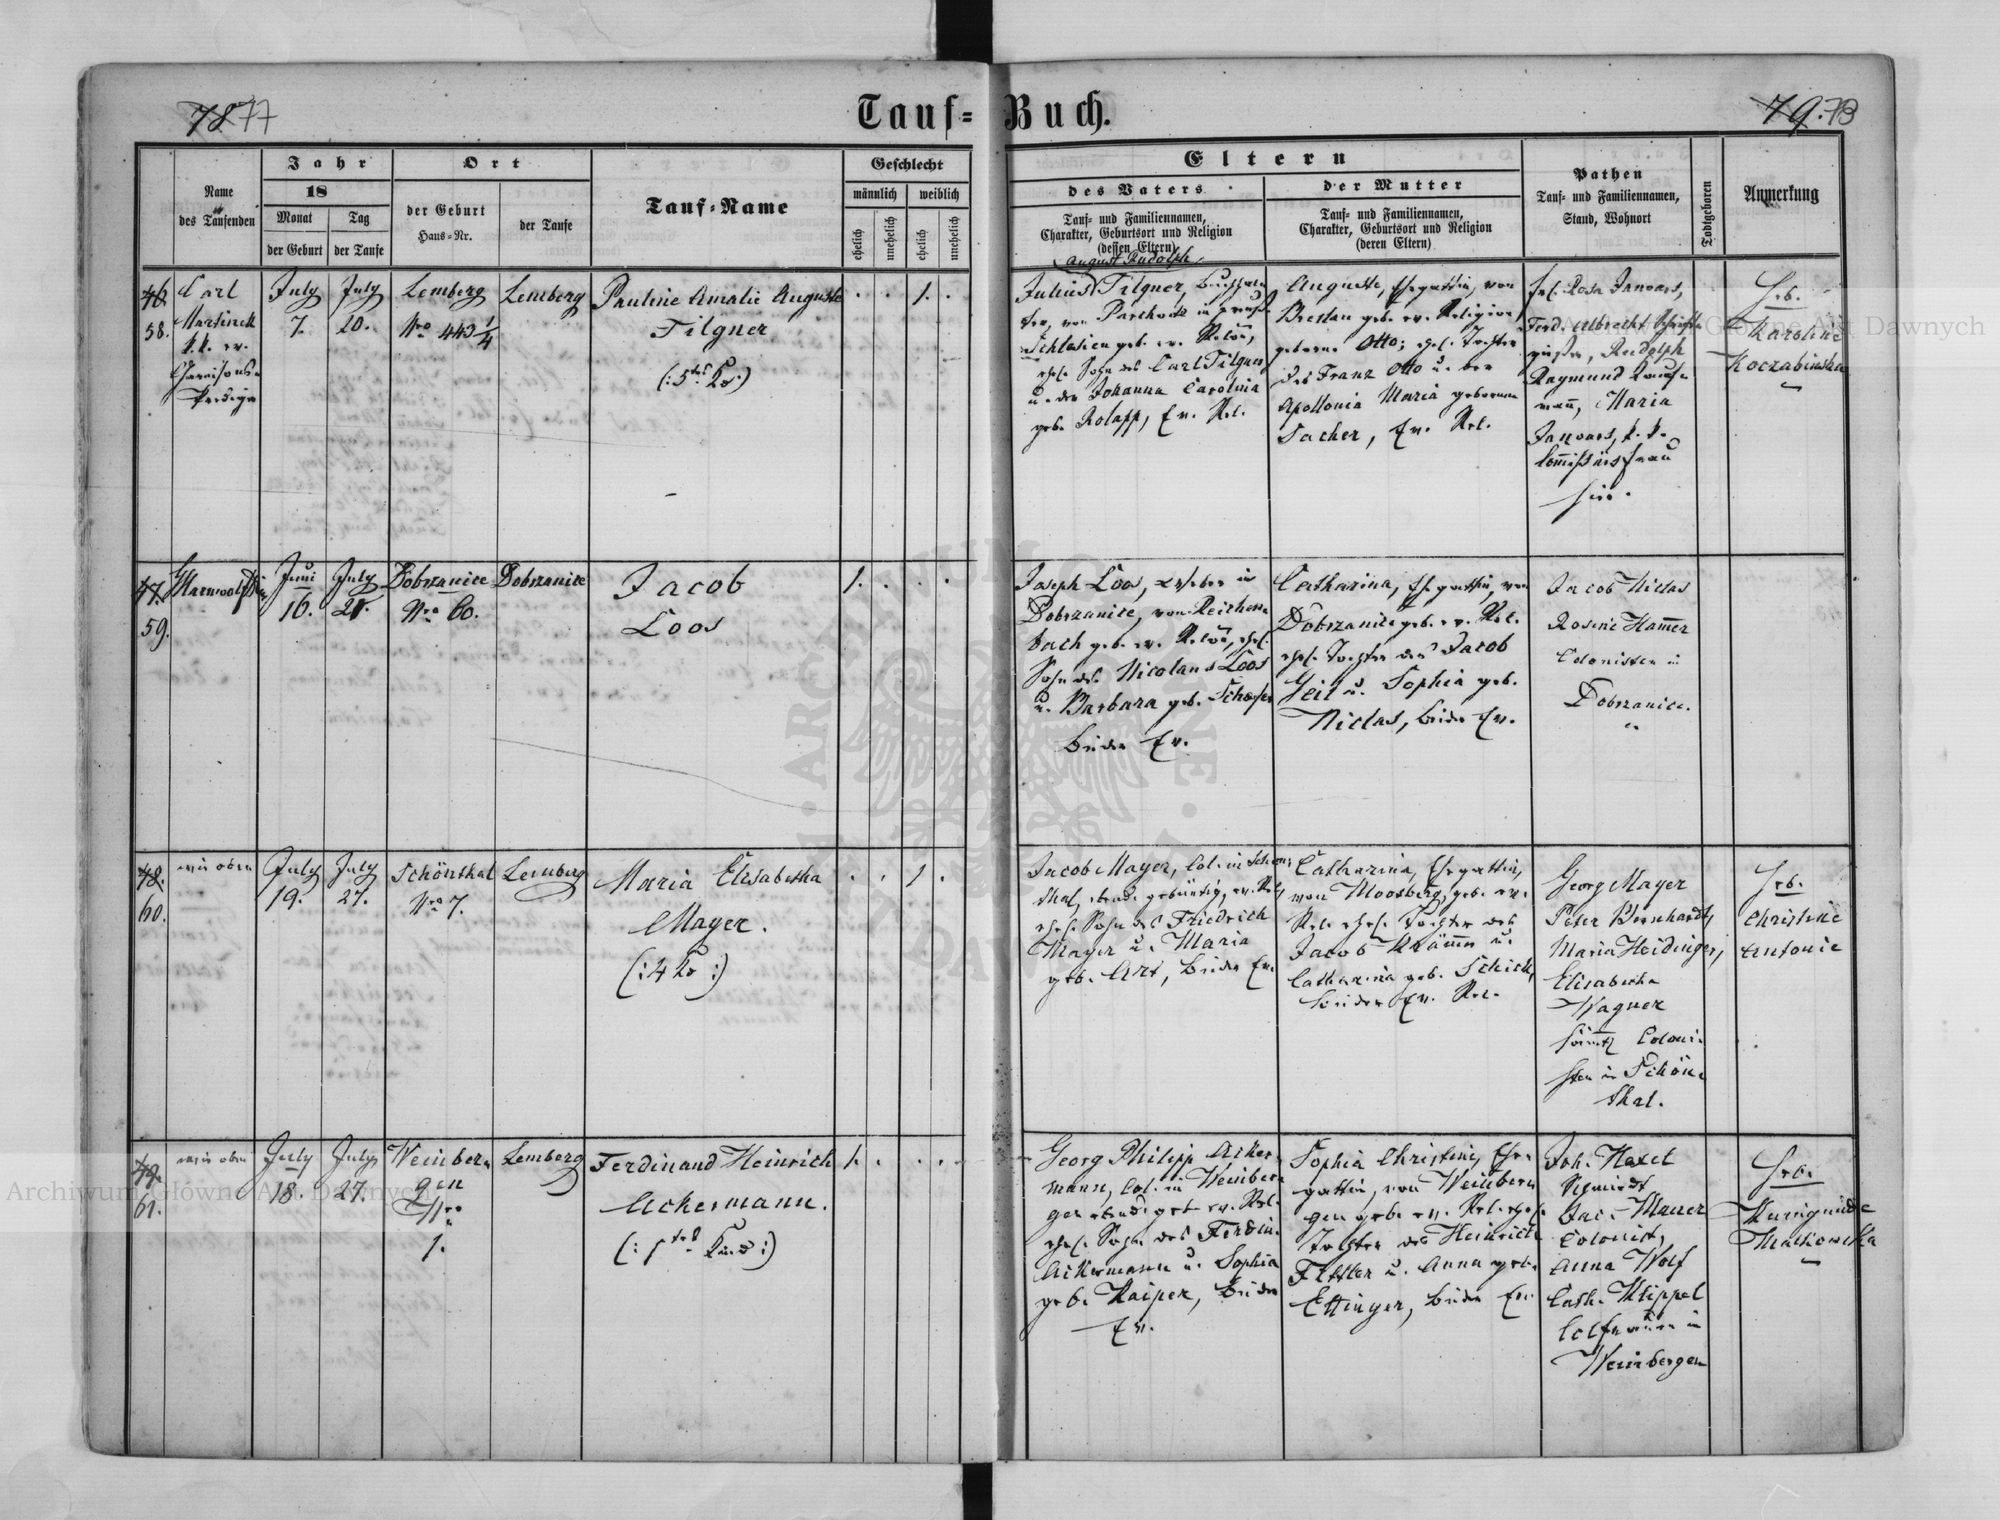 7877
Tauf-Buch.
79.78
Name
des Taufenden
Jahr
18
Monat
Tag
der Geburt
der Taufe
Ort
der Geburt
Haus-Nr.
der Taufe
Tauf-Name
Geschlecht
männlich
weiblich
ehelich
unehelich
ehelich
unehelich
Eltern
des Vaters
Tauf- und Familiennamen,
Charakter, Geburtsort und Religion
(dessen Eltern)
der Mutter
Tauf- und Familiennamen,
Charakter, Geburtsort und Religion
(deren Eltern)
Pathen
Tauf- und Familiennamen,
Stand, Wohnort
Todtgeboren
Anmerkung
46.
58.
Carl
Martinek
k.k. ev.
Garnisons-
Prediger
July
7.
July
20.
Lemberg
Nro 443 1/4
Lemberg
Pauline Amalie Auguste
Tilgner
(:5tes Kd:)
1.
August Rudolph
Julius Tilgner,
Schlesien geb. ev. Relon,
ehel. Sohn des Carl Tilgner
u. der Johanna Carolina
geb. Rolapp, Ev. Rel.
Auguste, Ehegattin, von
Breslau geb. ev. Religion,
geborne Otto; ehel. Tochter
des Franz Otto u. der
Apollonia Maria geborenen
Sacher, Ev. Rel.
Frl. Rosa Janvars,
Ferd. Albrecht Schrift-
gießer, Rudolph
Raymund Kauf-
mañ, Maria
Janvars, k.k.
Comissärsfrau
hier.
Heb.
Karoline
Koczabinska
47.
59.
Juni
16.
July
21.
Dobrzanice
Nro 60.
Dobrzanice
Jacob
Loos
1.
Joseph Loos, in
Dobrzanice, von Reichen-
bach geb. ev. Relon, ehel.
Sohn des Nicolaus Loos
u. Barbara geb. Schaefer
beide Ev.
Catharina, Ehegattin, von
Dobrzanice geb. ev. Rel.
ehel. Tochter des Jacob
Geil u. Sophia geb.
Niclas, beide Ev.
Jacob Niclas
Rosine Hamer
Colonisten in
Dobrzanice.
48.
60.
wie oben
July
19.
July
27.
Schönthal
Nro 7.
Lemberg
Maria Elisabetha
Mayer.
(:4 Kd:)
1.
Jacob Mayer, Col. in Schön-
thal, ebend. gebürtig, ev. Rel,
ehel. Sohn des Friedrich
Mayer u. Maria
geb. Art, beide Ev.
Catharina, Ehegattin,
von Moosberg, geb. ev.
Rel. ehel. Tochter des
Jacob u.
Catharina geb. Schick,
beide Ev. Rel.
Georg Mayer
Peter Bernhardt,
Maria Heidinger,
Elisabetha
Wagner
säm̃tl. Coloni-
sten in Schön-
thal.
Heb.
Christine
Antonie
49.
61.
wie oben
July
18.
July
27.
Weinber-
gen
Nro
1.
Lemberg
Ferdinand Heinrich
Ackermann.
(:1tes Kind:)
1.
Georg Philipp Acker-
mann, Col. in Weinber-
gen ebend. geb. ev. Rel.
ehel. Sohn des Ferdin.
Ackermann u. Sophia
geb. Kaiper, beide
Ev.
Sophia Christine, Ehe-
gattin, von Weinber-
gen geb. ev. Rel. ehel.
Tochter des Heinrich
u. Anna geb.
Ettinger, beide Ev.
Joh. Hexel
Jac. Maurer
Colonist,
Anna Wolf
Cath. Klippel
in
Weinbergen
Heb.
Kunigunde
Malkowska
ARCHIWUM GŁÓWNE AKT DAWNYCH
Archiwum Główne Akt Dawnych
Archiwum Główne Akt Dawnych